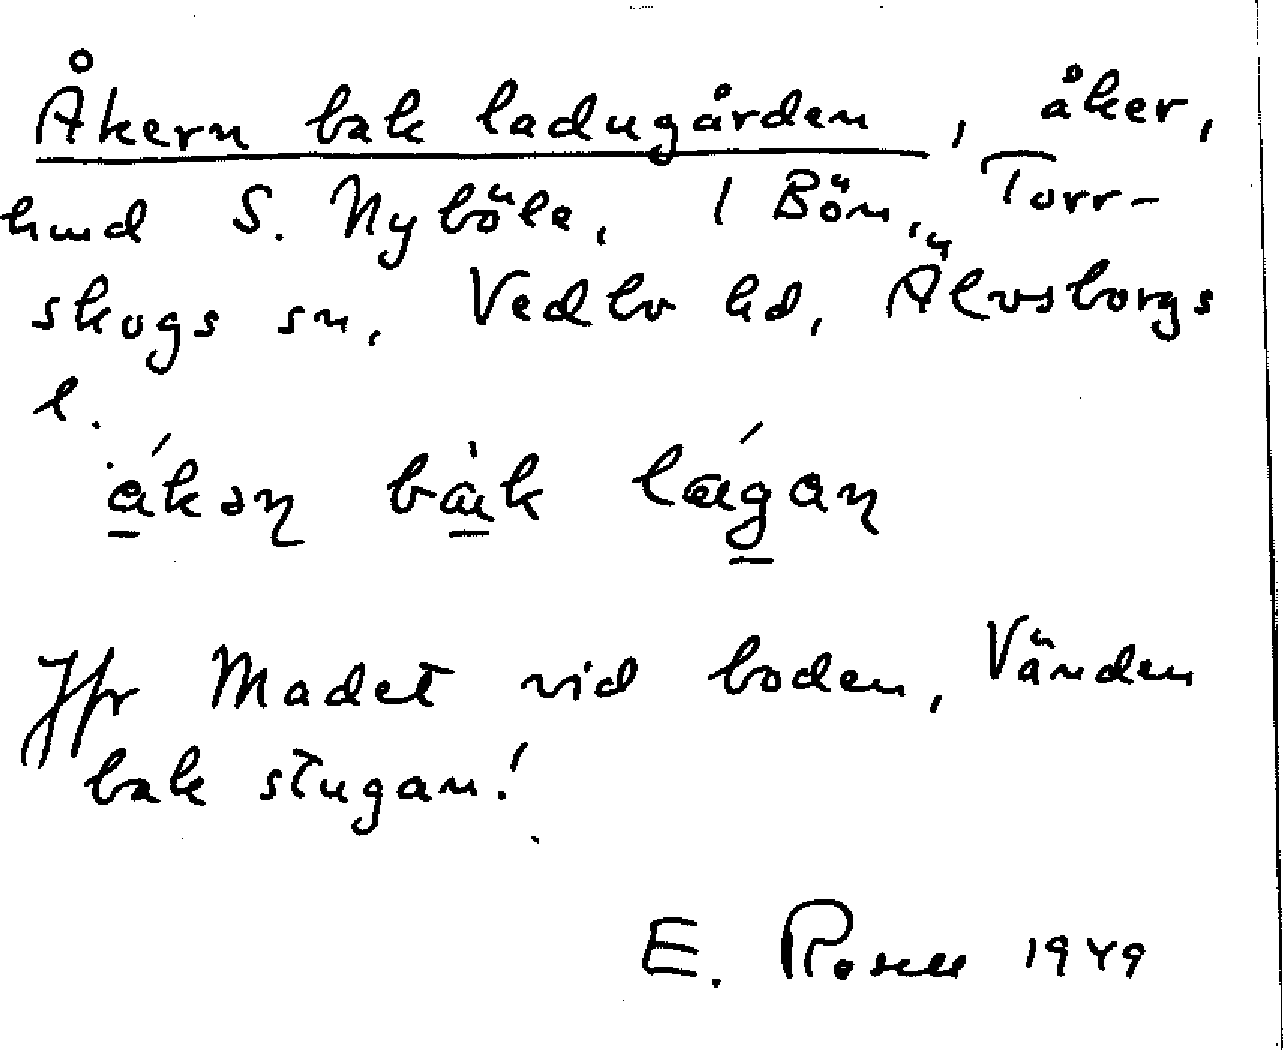 Åkern bak ladugården, åker,
hmd S. Nyböle, 1 Bön, Torr-
skogs sn. Vedbo hd, Älvsborgs
l.
ákən bàk lágan
Jfr Madet vid boden, Vänden
bak stugan!
E. Rosell 1949